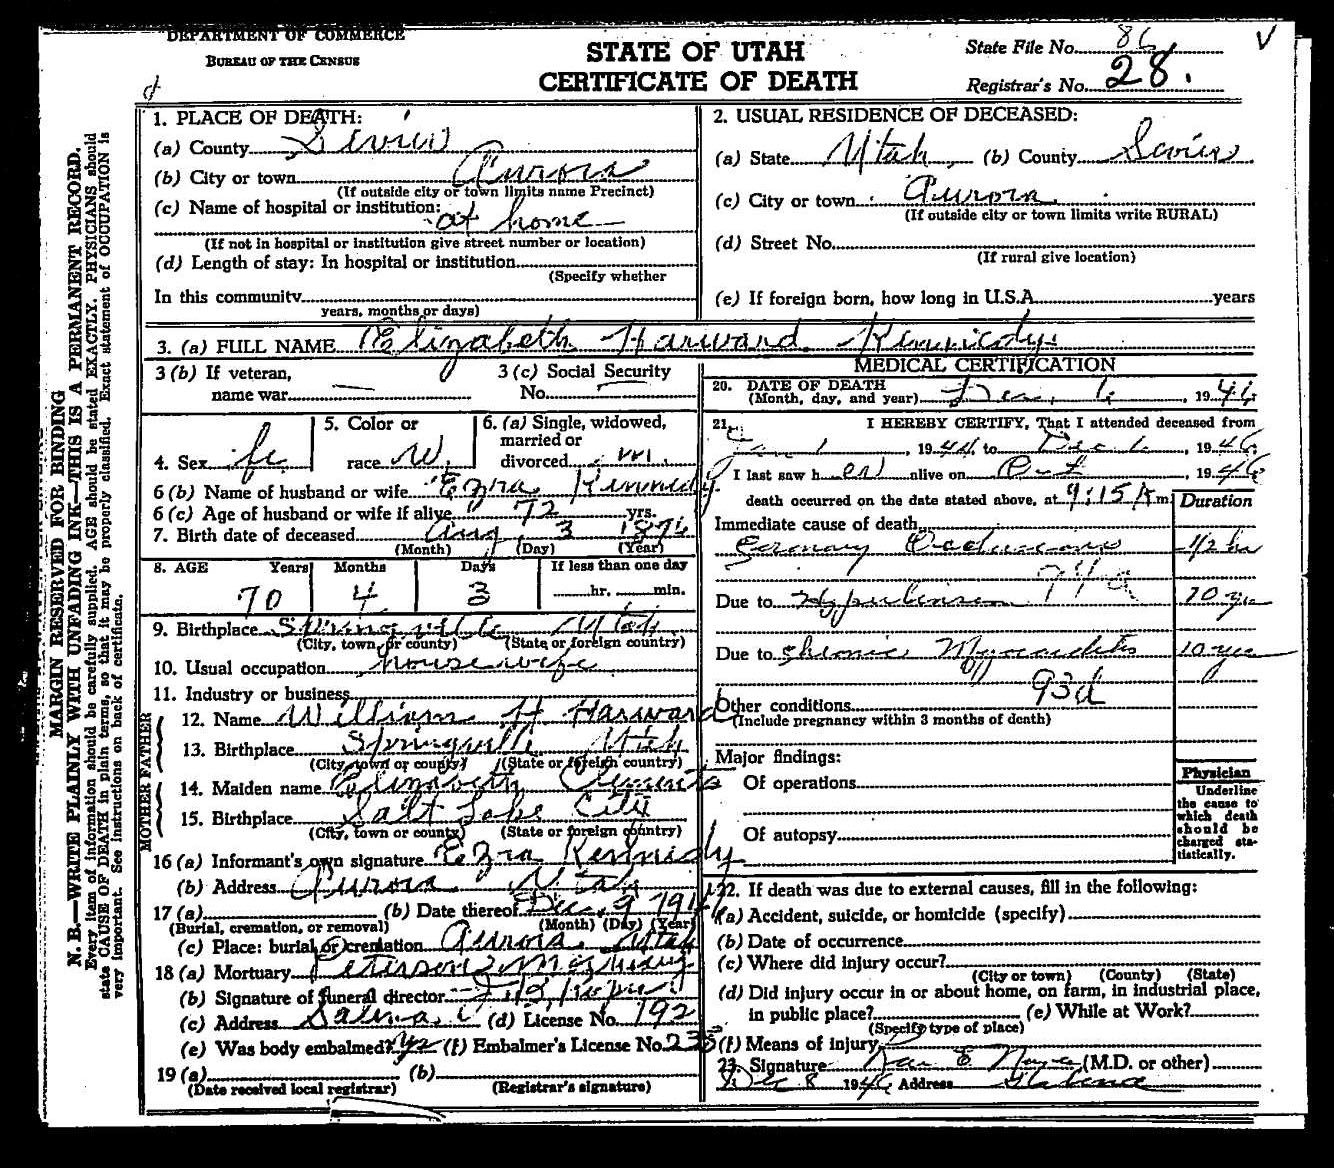 DEPARTMENT OF COMMERCE
BUREAU OF THE CENSUS
STATE OF UTAH
CERTIFICATE OF DEATH
State File No. 86
Registrar's No. 28.
V
MARGIN RESERVED FOR BINDING
N. B.—WRITE PLAINLY WITH UNFADING INK—THIS IS A PERMANENT RECORD.
Every item of information should be carefully supplied. AGE should be stated EXACTLY. PHYSICIANS should
state CAUSE OF DEATH in plain terms, so that it may be properly classified. Exact statement of OCCUPATION is
very important. See instructions on back of certificate.
1. PLACE OF DEATH:
(a) County Sevier
(b) City or town Aurora
(If outside city or town limits name Precinct)
(c) Name of hospital or institution:
at home
(If not in hospital or institution give street number or location)
(d) Length of stay: In hospital or institution
(Specify whether
In this community
years, months or days)
2. USUAL RESIDENCE OF DECEASED:
(a) State Utah (b) County Sevier
(c) City or town Aurora
(If outside city or town limits write RURAL)
(d) Street No.
(If rural give location)
(e) If foreign born, how long in U.S.A. years
3. (a) FULL NAME Elizabeth Harward Kennedy
3 (b) If veteran,
name war
3 (c) Social Security
No.
4. Sex fe
5. Color or
race W.
6. (a) Single, widowed,
married or
divorced m.
6 (b) Name of husband or wife Ezra Kennedy
6 (c) Age of husband or wife if alive 72 yrs.
7. Birth date of deceased Aug 3 1876
(Month) (Day) (Year)
8. AGE Years Months Days If less than one day
70 4 3 hr. min.
9. Birthplace Springville Utah
(City, town, or county) (State or foreign country)
10. Usual occupation housewife
11. Industry or business
FATHER
12. Name William H Harward
13. Birthplace Springville Utah
(City, town or county) (State or foreign country)
MOTHER
14. Maiden name Elizabeth
15. Birthplace Salt Lake City
(City, town or county) (State or foreign country)
16 (a) Informant's own signature Ezra Kennedy
(b) Address Aurora Utah
17 (a) (b) Date thereof Dec. 9 194
(Burial, cremation, or removal) (Month) (Day) (Year)
(c) Place: burial or cremation Aurora, Utah
18 (a) Mortuary Peterson Mortuary
(b) Signature of funeral director
(c) Address Salina, (d) License No. 192
(e) Was body embalmed? yes (f) Embalmer's License No. 235
19 (a) (b)
(Date received local registrar) (Registrar's signature)
MEDICAL CERTIFICATION
20. DATE OF DEATH
(Month, day, and year) Dec. 6, 1946
21. I HEREBY CERTIFY, That I attended deceased from
Jan 1, 1944, to Dec 6, 1946
I last saw her alive on Oct, 1946
death occurred on the date stated above, at 9:15 A m.
Duration
Immediate cause of death
Coronary Occlusion 1/2 hr
Due to Hypertension 10 yr
Due to Chronic Myocarditis 10 yr
93d
Other conditions
(Include pregnancy within 3 months of death)
Major findings:
Of operations
Of autopsy
Physician
Underline
the cause to
which death
should be
charged sta-
tistically.
22. If death was due to external causes, fill in the following:
(a) Accident, suicide, or homicide (specify)
(b) Date of occurrence
(c) Where did injury occur?
(City or town) (County) (State)
(d) Did injury occur in or about home, on farm, in industrial place,
in public place? (e) While at Work?
(Specify type of place)
(f) Means of injury
23. Signature (M.D. or other)
Dec 8 1946 Address